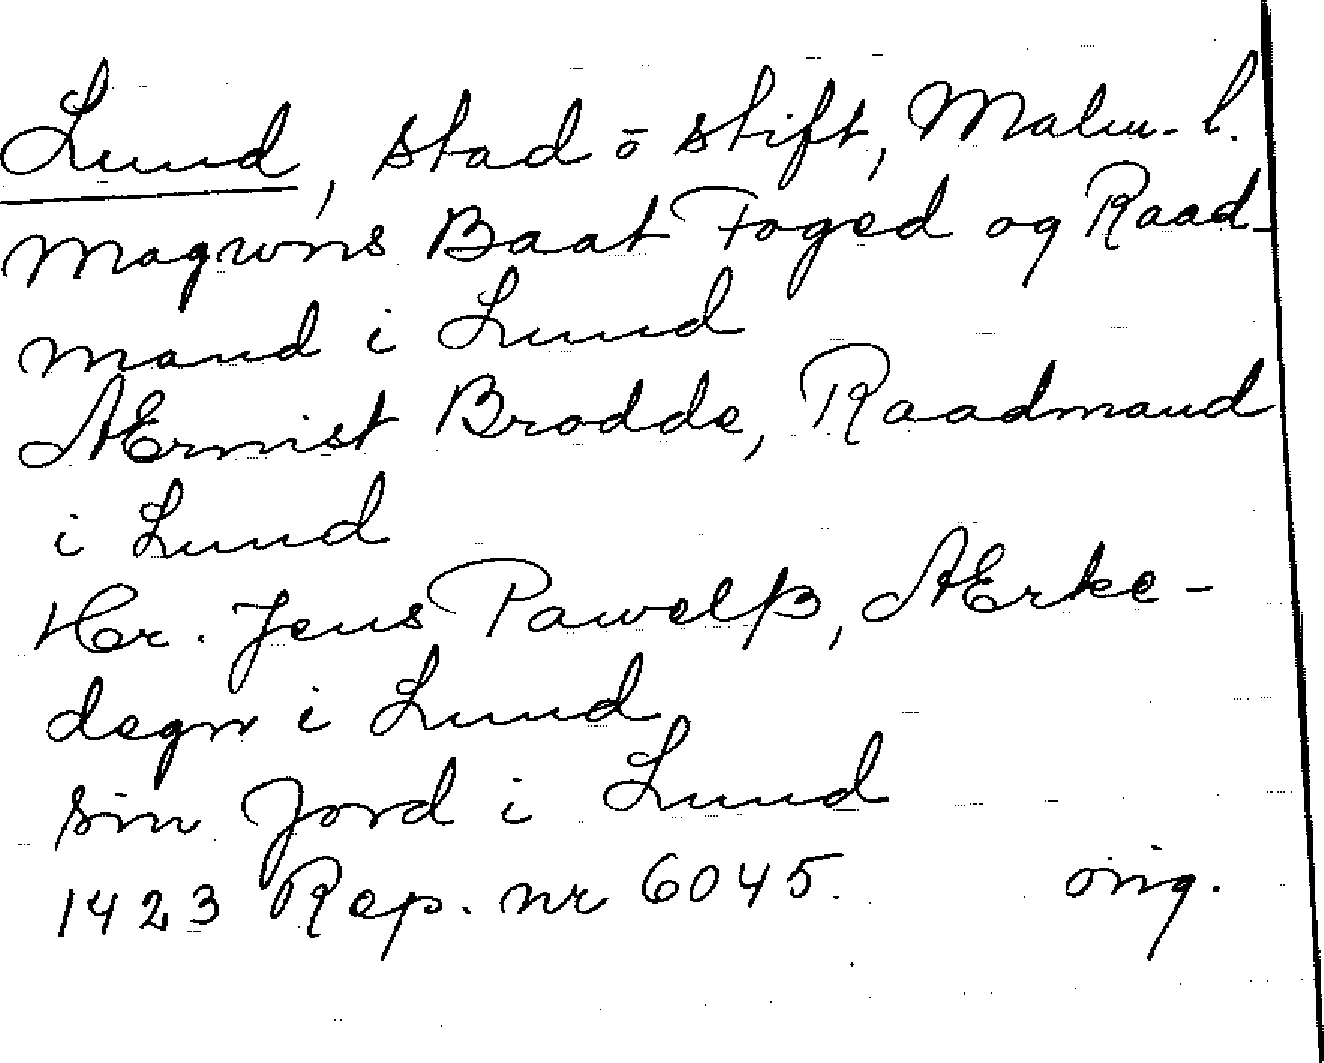 Lund, stad o stift, Malm. l.
Magnvns Baat Foged og Raad-
mand i Lund
Ærnist Brodde, Raadmand
i Lund
Hr. Jens Pawelß, Ærke-
degn i Lund
sin Jord i Lund
1423 Rep. nr 6045. orig.